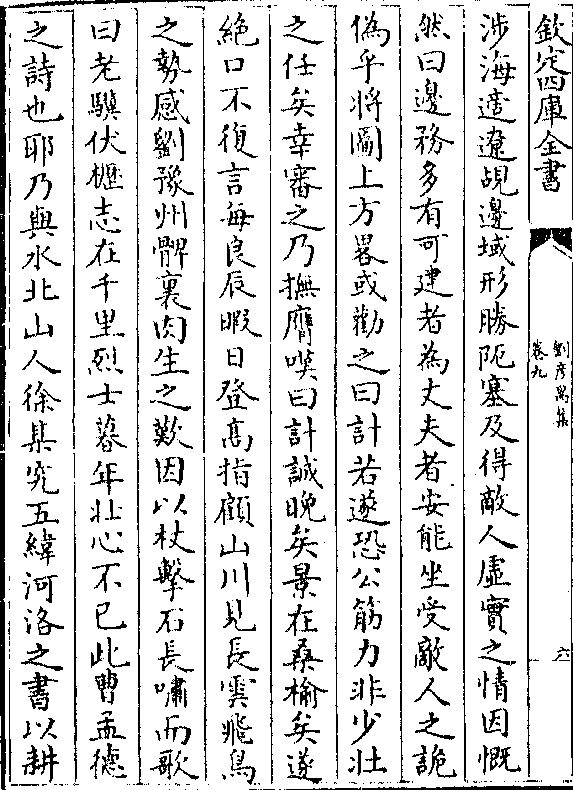 欽定四庫全書
劉彥昺集
卷九
六
涉海遼遼覘邊域形勝阨塞及得敵人虛實之情因慨
然曰邊務多有可建者為丈夫者安能坐受敵人之詭
偽乎將圖上方畧或勸之曰計若遂恐公筋力非少壯
之任矣幸審之乃撫膺嘆曰計誠晚矣景在桑榆矣遂
絶口不復言每良辰暇日登髙指顧山川見長雲飛鳥
之勢感劉豫州髀裏肉生之歎因以杖擊石長嘯而歌
曰老驥伏櫪志在千里烈士暮年壯心不已此曹孟德
之詩也耶乃與水北山人徐某究五緯河洛之書以耕